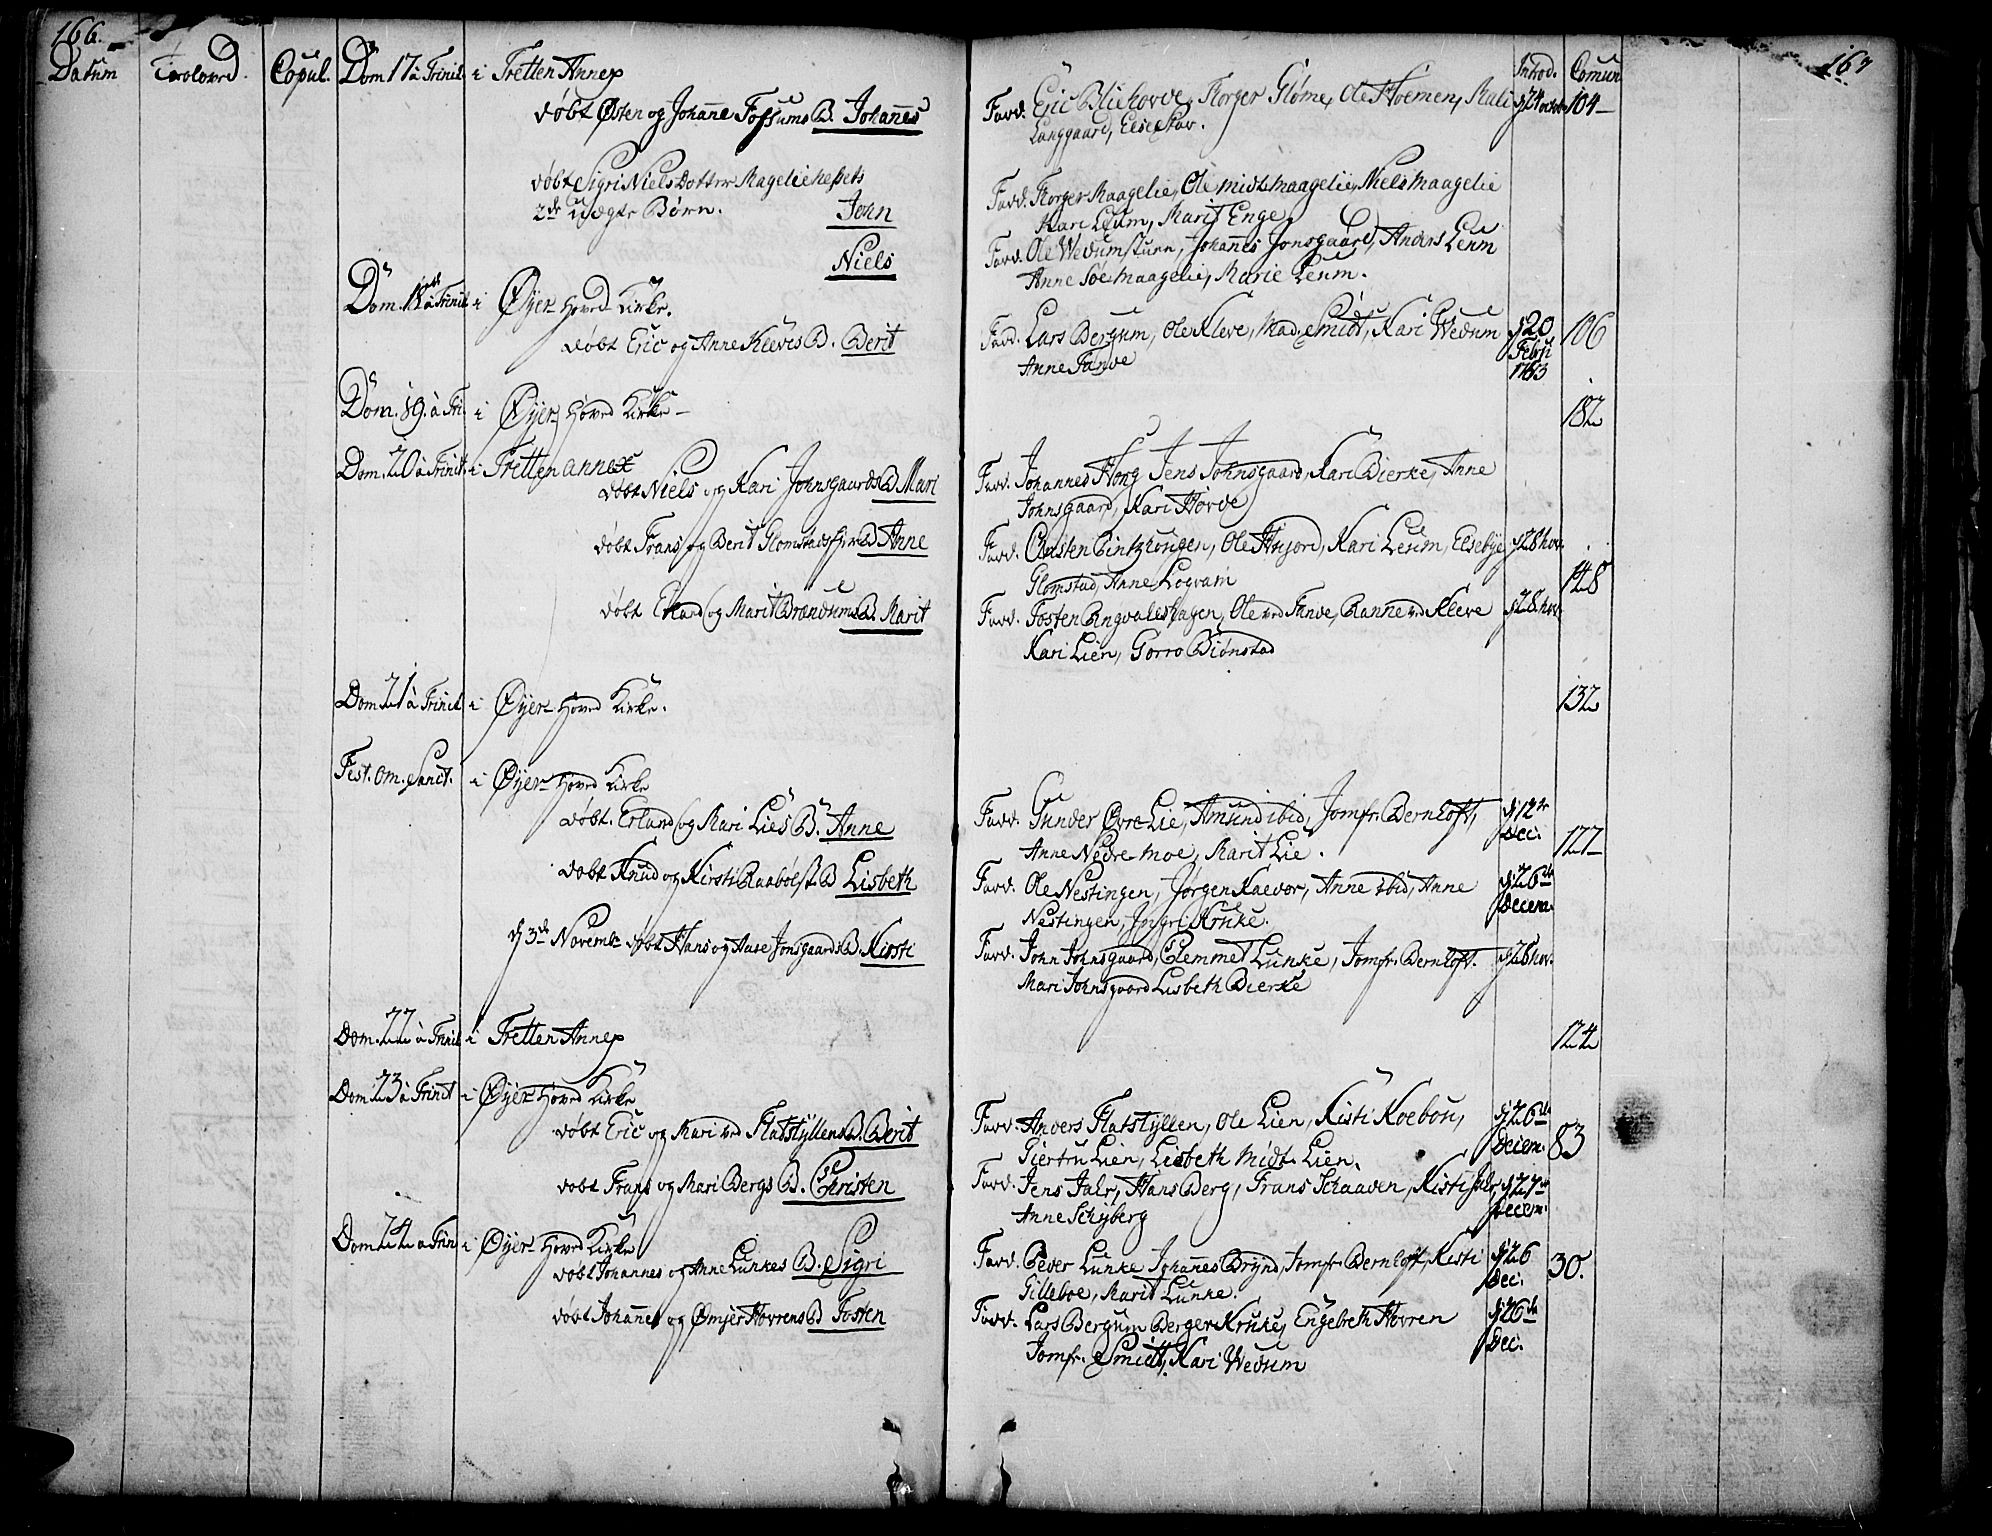 166.
Datum Troloved. Copul. Dom 17 à Trinit. i Tretten Annex
døbt Østen og Johane Fossums B. Johanes
døbt Sigri Niels Dotter Magelie
2de uægte Børn. John
Niels
Dom. 18de à Trinit i Øyer Hoved Kirke.
døbt Eric og Anne Kleves B. Berit
Dom. 19. à Tri. i Øyer Hoved Kirke
Dom. 20 à Trinit. i Tretten annex
døbt Niels og Kari Johnsgaards B. Mari
døbt Frans og Berit Glomstads B. Anne
døbt Erland og Marit Brændums B. Marit
Dom 21 à Trinit i Øyer Hoved Kirke.
Fest. Om. Sanct. i Øyer Hoved Kirke
døbt. Erland og Mari Lies B. Anne
døbt Knud og Kirsti Raabøls B Lisbeth
d 3de Novembr døbt Hans og Aase Jonsgaards B. Kirsti
Dom. 22 à Trinit i Tretten Annex
Dom 23 à Trinit i Øyer Hoved Kirke
døbt Eric og Mari ved Flatstyllens B. Berit
døbt Frans og Mari Bergs B. Christen
Dom 24 à Trin i Øyer Hoved Kirke
døbt Johannes og Anne Lunkes B. Sigri
døbt Johanes og Hovrens B Tosten
167
Introd. Comun
Fadd. Eric Blichovde, Torger Glome, Ole Moemen, Mali d 24 octobr 104
Langgaard, Else Stav.
Fadd. Torger Maagelie, Ole midt Maagelie, Niels Maagelie
Kari Leum, Marit Enge
Fadd. Ole Wedumstuen, Johanes Jonsgaard, Anders Leum
Anne Søe Maagelie, Marie Leum.
Fadd. Lars Bergum, Ole Kleve, Mad. Smidt, Kari Wedum d 20 106
Anne Tande Febri
1763
182
Fadd. Johannes Hong Jens Johnsgaard, Kari Bierke, Anne
Johnsgaard, Kari Hovde
Fadd. Christen Ole Kari Leum, Elsebye d 28 nov.
Glomstad, Anne Logvam 148
Fadd. Tosten Ole ved Tande, Ranne ved Kleve d 28 nov
Kari Lien, Gorro Biønstad
132
Fadd. Gunder Øvre Lie, Amund ibid, Jomfr. Bernhoft, d 12te
Anne Nedre Moe, Marit Lie. Dec. 127
Fadd. Ole Nestingen, Jørgen Anne ibid, Anne d 26de
Nestingen, Ingri Kruke. Decem.
Fadd. John Johnsgaard, Clemmet Lunke, Jomfr. Bernhoft. d 28 nov.
Mari Johnsgaard Lisbeth Bierke
124
Fadd. Anders Flatstyllen, Ole Lien, Kisti Koebou, d 26de
Giertru Lien, Lisbeth Midt Lien. Decem. 83
Fadd. Jens Jalr, Hans Berg, Frans Schaaden, Kisti Jalr d 27de
Anne Schyberg Decem.
Fadd. Peder Lunke Johanes Brynd, Jomfr. Bernhoft, Kisti d 26 30.
Gilleboe, Marit Lunke. Dec.
Fadd. Lars Bergum Berger Kruke, Engebreth Hovren d 26de
Jomfr. Smidt, Kari Wedum Dec.